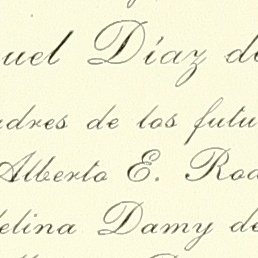 uel Díaz de
adres de los futu
Alberto E. Rod
elina Damy de